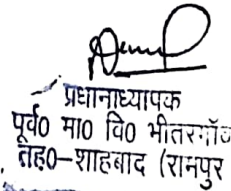 प्रधानाध्यापक
पूर्व० मा० वि० भीतरगाँव
तह०-शाहबाद (रामपुर